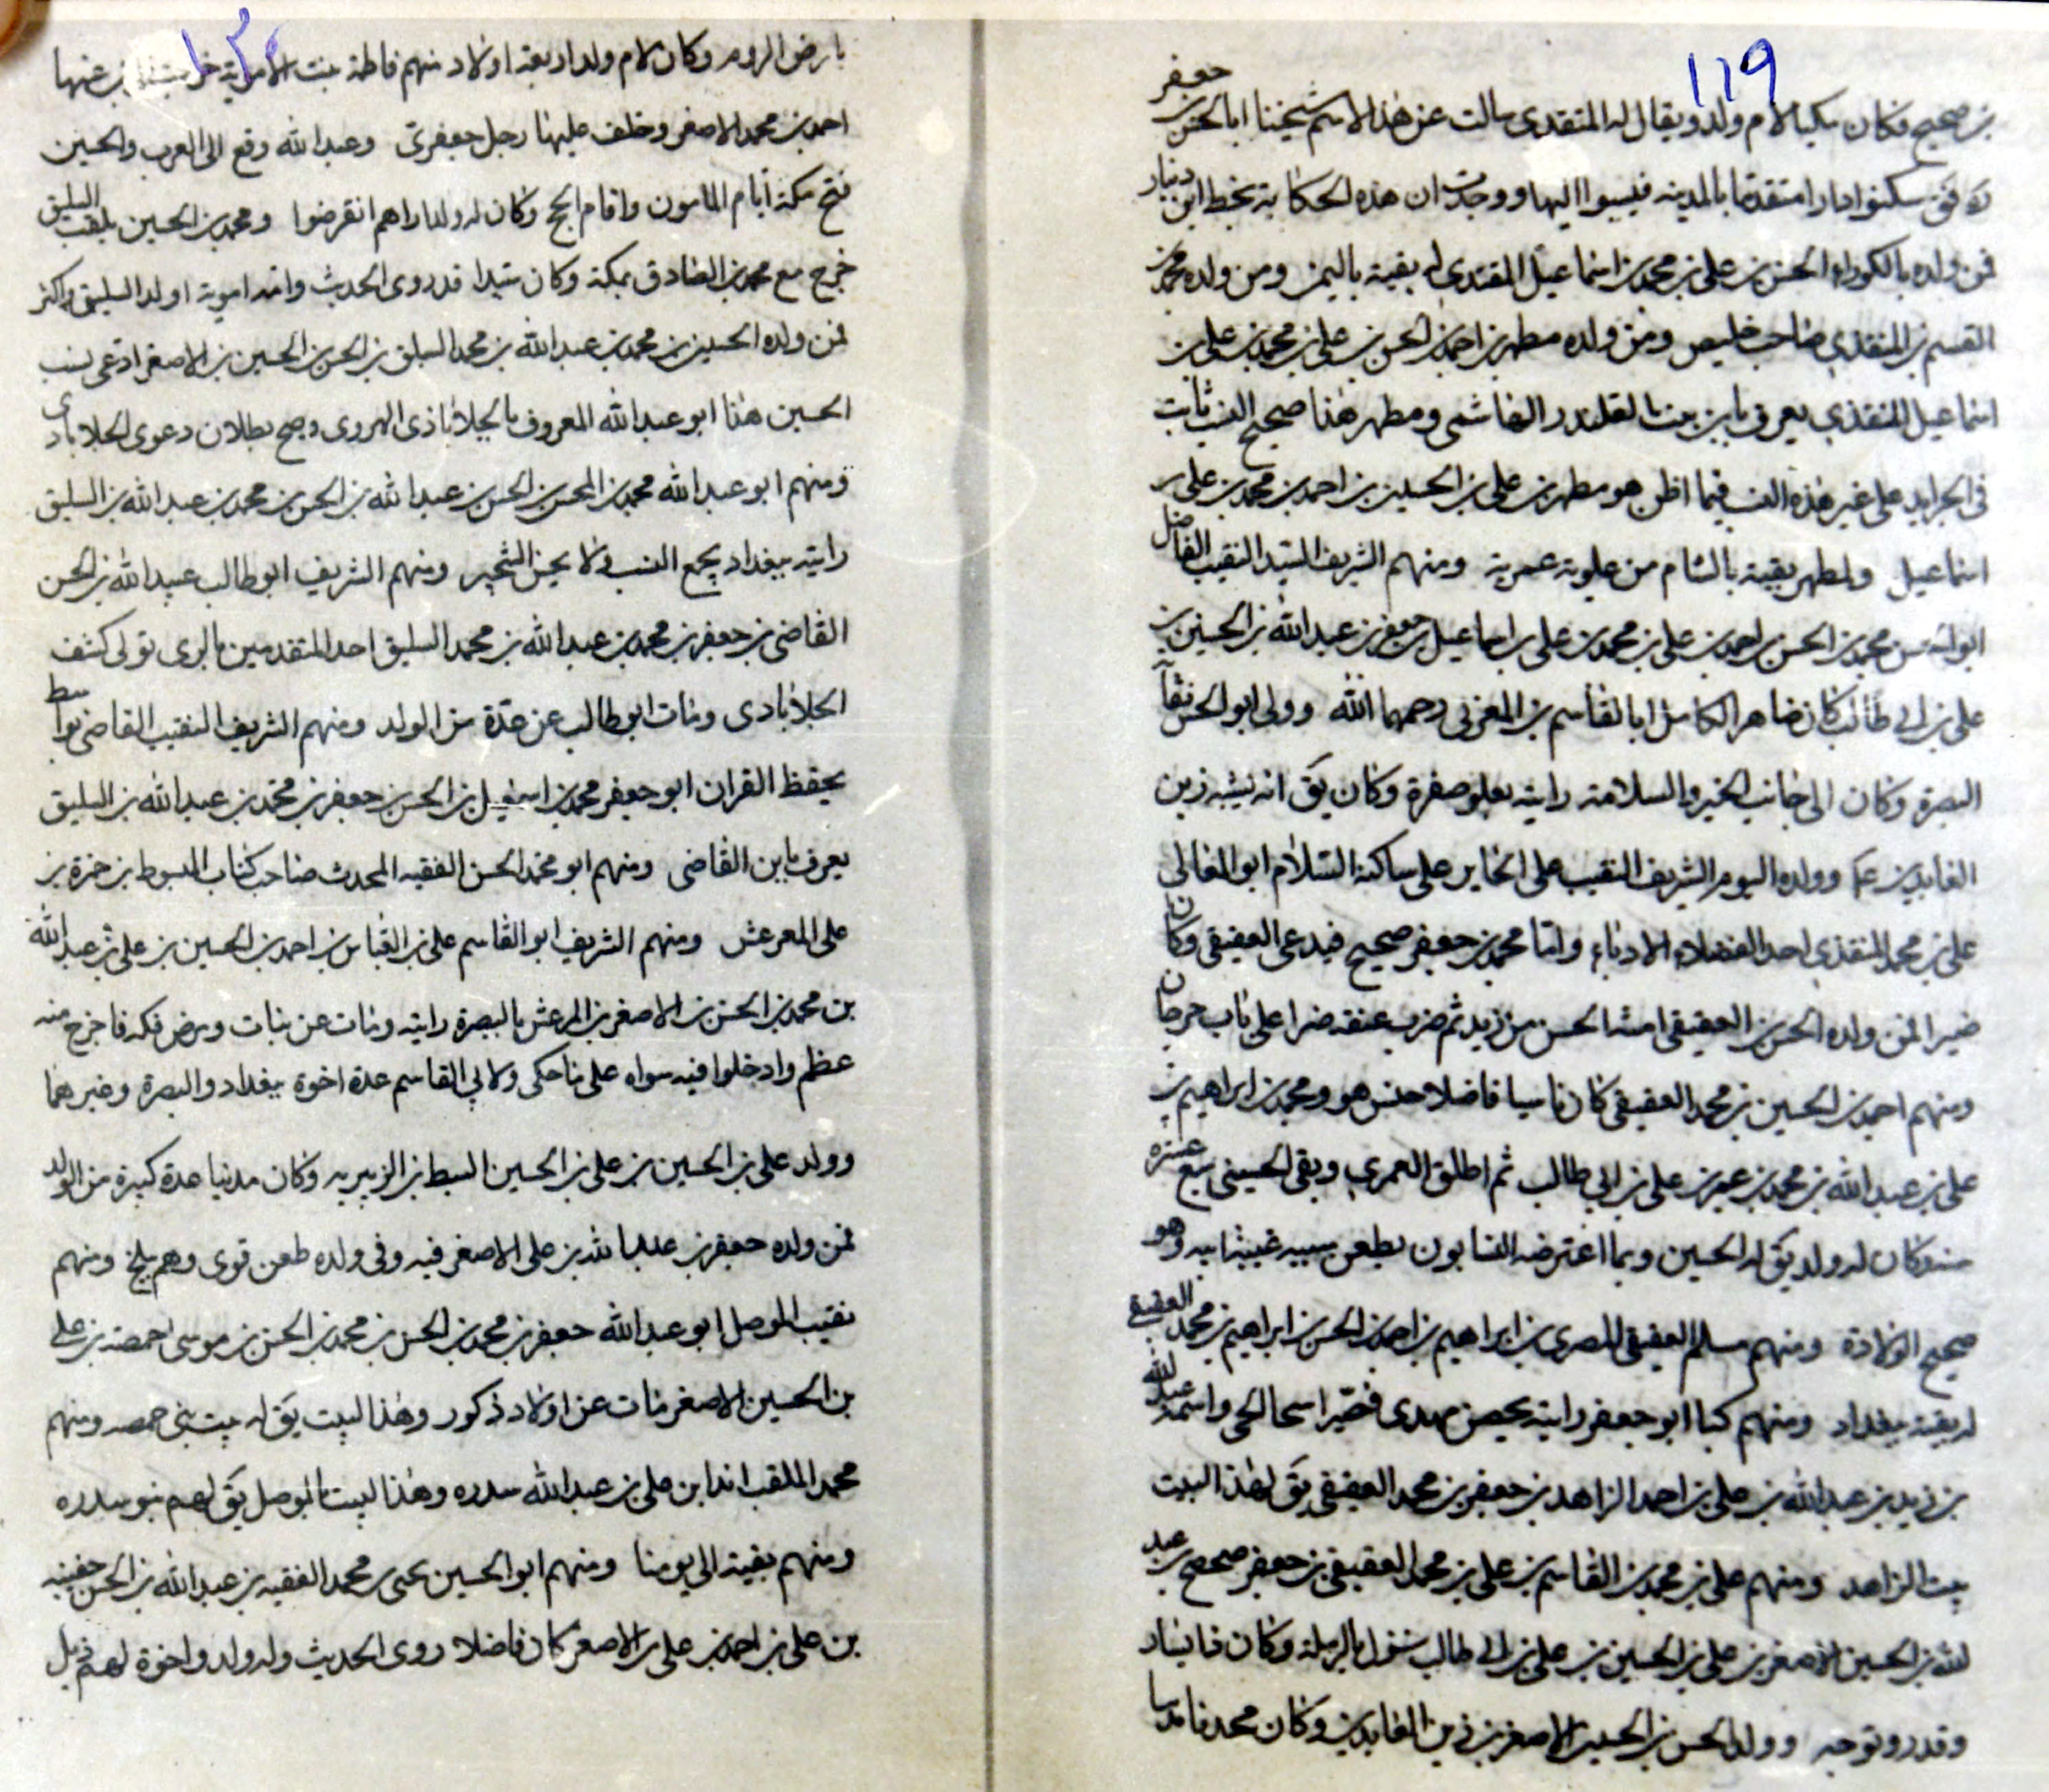 119
بن صحيح فكان سكينا لام ولد ويقال له المنقدى سالت عن هذا الاسم شيخنا ابا الحسن جعفر
سكنوا دارا منقدنا بالمدينه فنسبوا اليها ووجدت ان هذه الحكاية بخط ابن دينار
فمن ولده بالكوراء الحسن بن على بن محمد بن اسماعيل المنقدى له بقية باليمن ومن ولده محمد بن
القسم بن المنقذى صاحب خليص ومن ولده مطهر بن احمد بن الحسن بن على بن محمد بن على بن
اسماعيل المنقذى يعرف بابن بنت القلندر الهاشمى ومطهر هذا صحيح النسب ثابت
فى الجرايد على غير هذه النسب فيما اظن هو مطهر بن على بن الحسين بن احمد بن محمد بن على بن
اسماعيل ولمطهر بقية بالشام من علوية عمرية ومنهم الشريف السيد النقيب الفاضل
ابو الحسن محمد بن الحسن بن احمد بن على بن محمد بن على بن اسماعيل بن جعفر بن عبدالله بن الحسين بن
على بن ابى طالب كان صاهر الكامل ابا القاسم بن المغربى رحمهما الله وولى ابو الحسن نقابة
البصرة وكان الى جانب الخير والسلامة رايته يعلوه صفرة وكان يق انه يشبه زين
العابدين عم وولده اليوم الشريف النقيب على الحاير على ساكنه السلام ابو المعالى
على بن محمد المنقذى احد الفضلاء الادباء واما محمد بن جعفر صحيح فيدعى العقيقى وكان
ضيرا فمن ولده الحسن بن العقيقى امنه الحسن بن زيد ثم ضرب عنقه صبرا على باب جرجان
ومنهم احمد بن الحسين بن محمد العقيقى كان فاضلا حبس هو ومحمد بن ابراهيم بن
على بن عبدالله بن محمد بن عمر بن على بن ابى طالب ثم اطلق العمرى وبقى الحسينى سبع عشرة
سنة وكان له ولد يق له الحسين وبما اعترضه النسابون بطعن سببه غيبة ابيه وهو
صحيح الولادة ومنهم مسلم العقيقى المصرى بن ابراهيم بن احمد بن الحسن بن ابراهيم بن محمد العقيقى
له بقية ببغداد ومنهم ابو جعفر رايته بحصن مهدى قصيرا واسمه عبدالله
بن زيد بن عبدالله بن على بن احمد الزاهد بن جعفر بن محمد العقيقى يق لهذا البيت
بيت الزاهد ومنهم على بن محمد بن القاسم بن على بن محمد العقيقى بن جعفر صحصح بن عبد
الله بن الحسين الاصغر بن على بن الحسين بن على بن ابى طالب بالرملة وكان
وقدر وتوجه وولد الحسن بن الحسين الاصغر بن زين العابدين وكان محمد
بارض الروم وكان لام ولد اربعة اولاد منهم فاطمة بنت عنها
احمد بن محمد الاصغر وخلف عليها رجل جعفرى وعبدالله وقع الى العرب والحسين
فتح مكة ايام المامون واقام الحج وكان له ولد اراهم انقرضوا ومحمد بن الحسين يلقب السليق
خرج مع محمد بن الصادق بمكة وكان سيدا قد روى الحديث وامه اموية اولد السليق واكثر
فمن ولده الحسين بن محمد بن عبدالله بن محمد السليق بن الحسن بن الحسين بن الاصغر ادعى نسب
الحسين هذا ابو عبدالله المعروف بالجلاباذى الهروى وصح بطلان دعوى الجلابادى
ومنهم ابو عبدالله محمد بن المحسن بن الحسن بن عبدالله بن الحسن بن محمد بن عبدالله بن السليق
رايته ببغداد يجمع النسب ولا يحسن الشجير ومنهم الشريف ابو طالب عبيدالله بن الحسن
القاضى بن جعفر بن محمد بن عبدالله بن محمد السليق احد المتقدمين بالرى تولى كشف
الجلابادى ومات ابو طالب عن عدة من الولد ومنهم الشريف النقيب القاضى بواسط
يحفظ القران ابو جعفر محمد بن اسمعيل بن الحسن بن جعفر بن محمد بن عبدالله بن السليق
يعرف بابن القاضى ومنهم ابو محمد الحسن الفقيه المحدث صاحب كتاب المبسوط بن حمزة بن
على المرعش ومنهم الشريف ابو القاسم على بن العباس بن احمد بن الحسين بن على بن عبدالله
بن محمد بن الحسن بن الاصغر بن المرعش بالبصرة رايته ومات عن بنات ومرض فكه فاخرج منه
عظم وادخلوا فيه سواه على ما حكى ولابى القاسم عدة اخوة ببغداد والبصرة وغيرهما
وولد على بن الحسين بن على بن الحسين السبط بن الزبيرية وكان مدنيا عدة كبيرة من الولد
فمن ولده جعفر بن عبدالله بن على الاصغر فيه وفى ولده طعن قوى وهم ببلخ ومنهم
نقيب الموصل ابو عبدالله جعفر بن محمد بن الحسن بن محمد بن الحسن بن موسى حمصه بن على
بن الحسين الاصغر مات عن اولاد ذكور وهذا البيت يق له بيت بنى حمصه ومنهم
محمد الملقب ابن على بن عبدالله سدره وهذا البيت بالموصل يق لهم بنو سدره
ومنهم بقية الى يومنا ومنهم ابو الحسين يحيى بن محمد الفقيه بن عبدالله بن الحسن حفينه
بن على بن احمد بن على بن الاصغر كان فاضلا روى الحديث وله ولد واخوة لهم ذيل